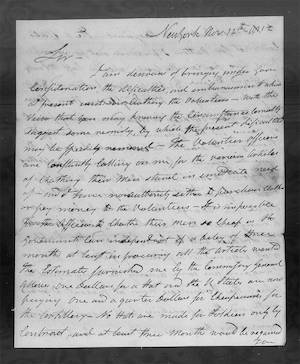 New York Nov. 12th 1812
Sir
I am desirous of bringing under your
consideration the difficulties and embarrassments which
at present exist in clothing the Volunteers - with the
view that you may knowing the circumstances
suggest some remedy, by which the present difficulties
may be speedily removed - The Volunteer Officers
are constantly calling on me for the various articles
of Clothing their Men stand in immediate need
of - and I have no authority either to purchase Clothes
or pay money to the Volunteers - It is impossible
for the Officers to Clothe their men so cheap as the
Government can independent of a delay of
month at least in procuring all the articles wanted
the Estimate furnished me by the Commissary General
allows one Dollar for a Hat and the U States are now
paying one and a quarter Dollars for
the Artillery - No Hats are made for Soldiers only by
Contract, and at least three Months would be required